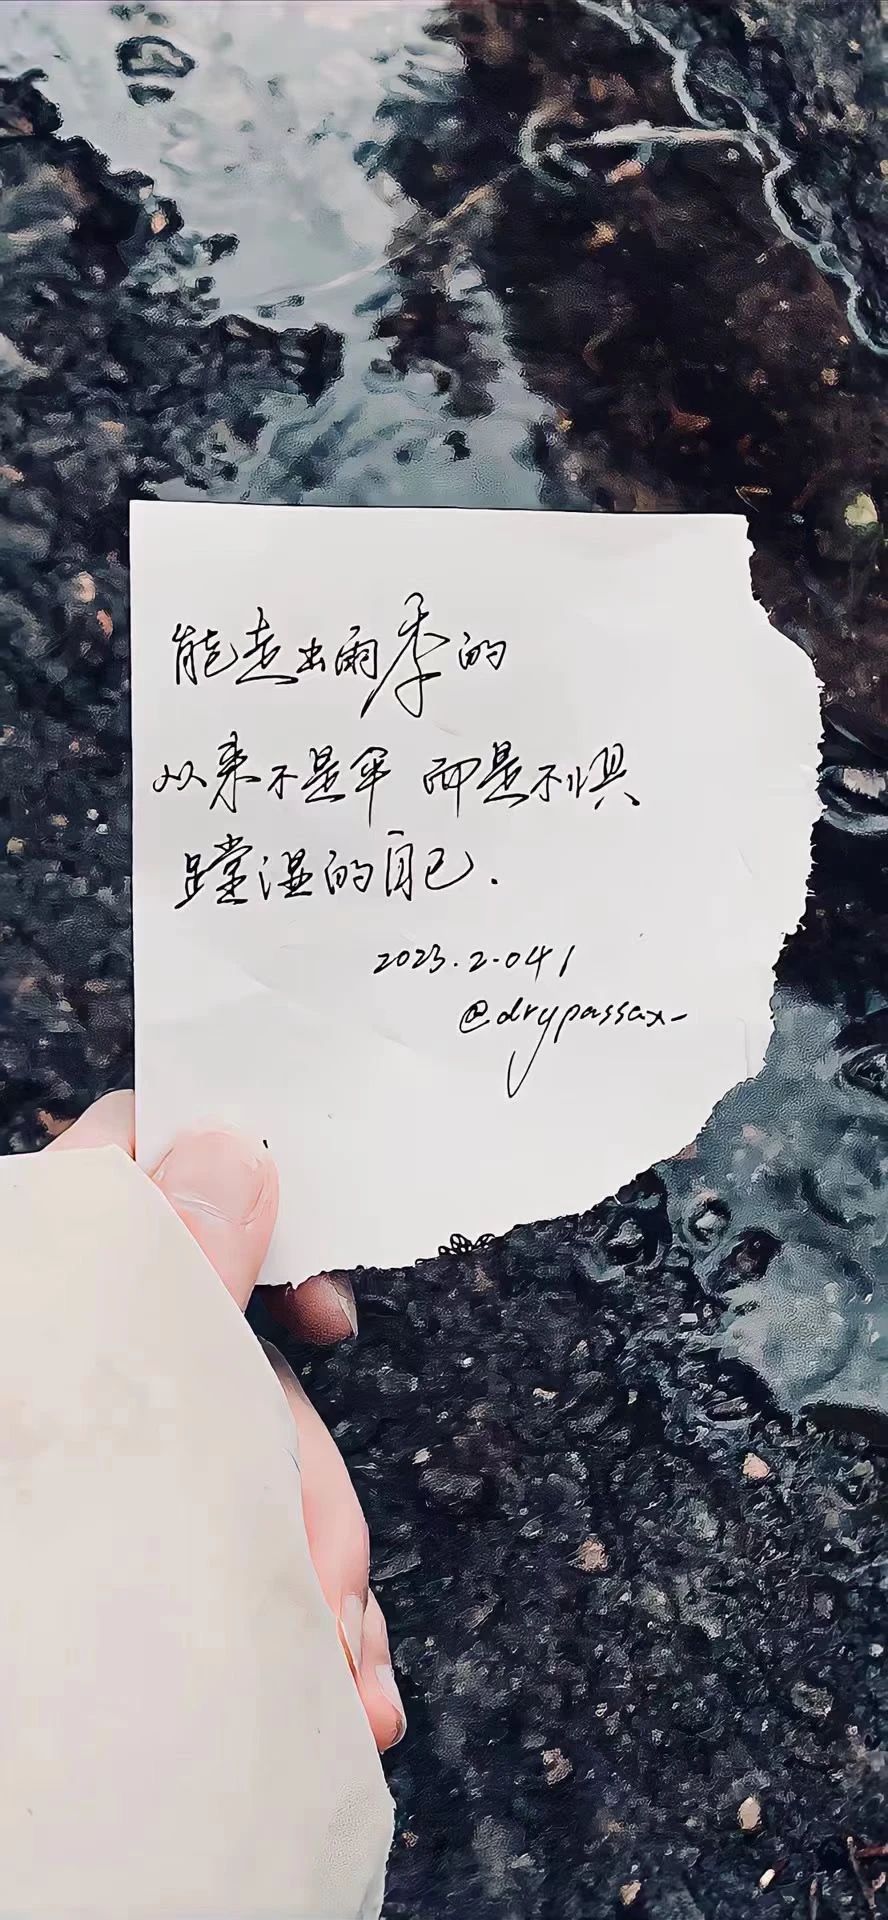 能走出雨季的
从来不是伞 而是不惧
蹚湿的自己.
2023.2.041
@drypassax-